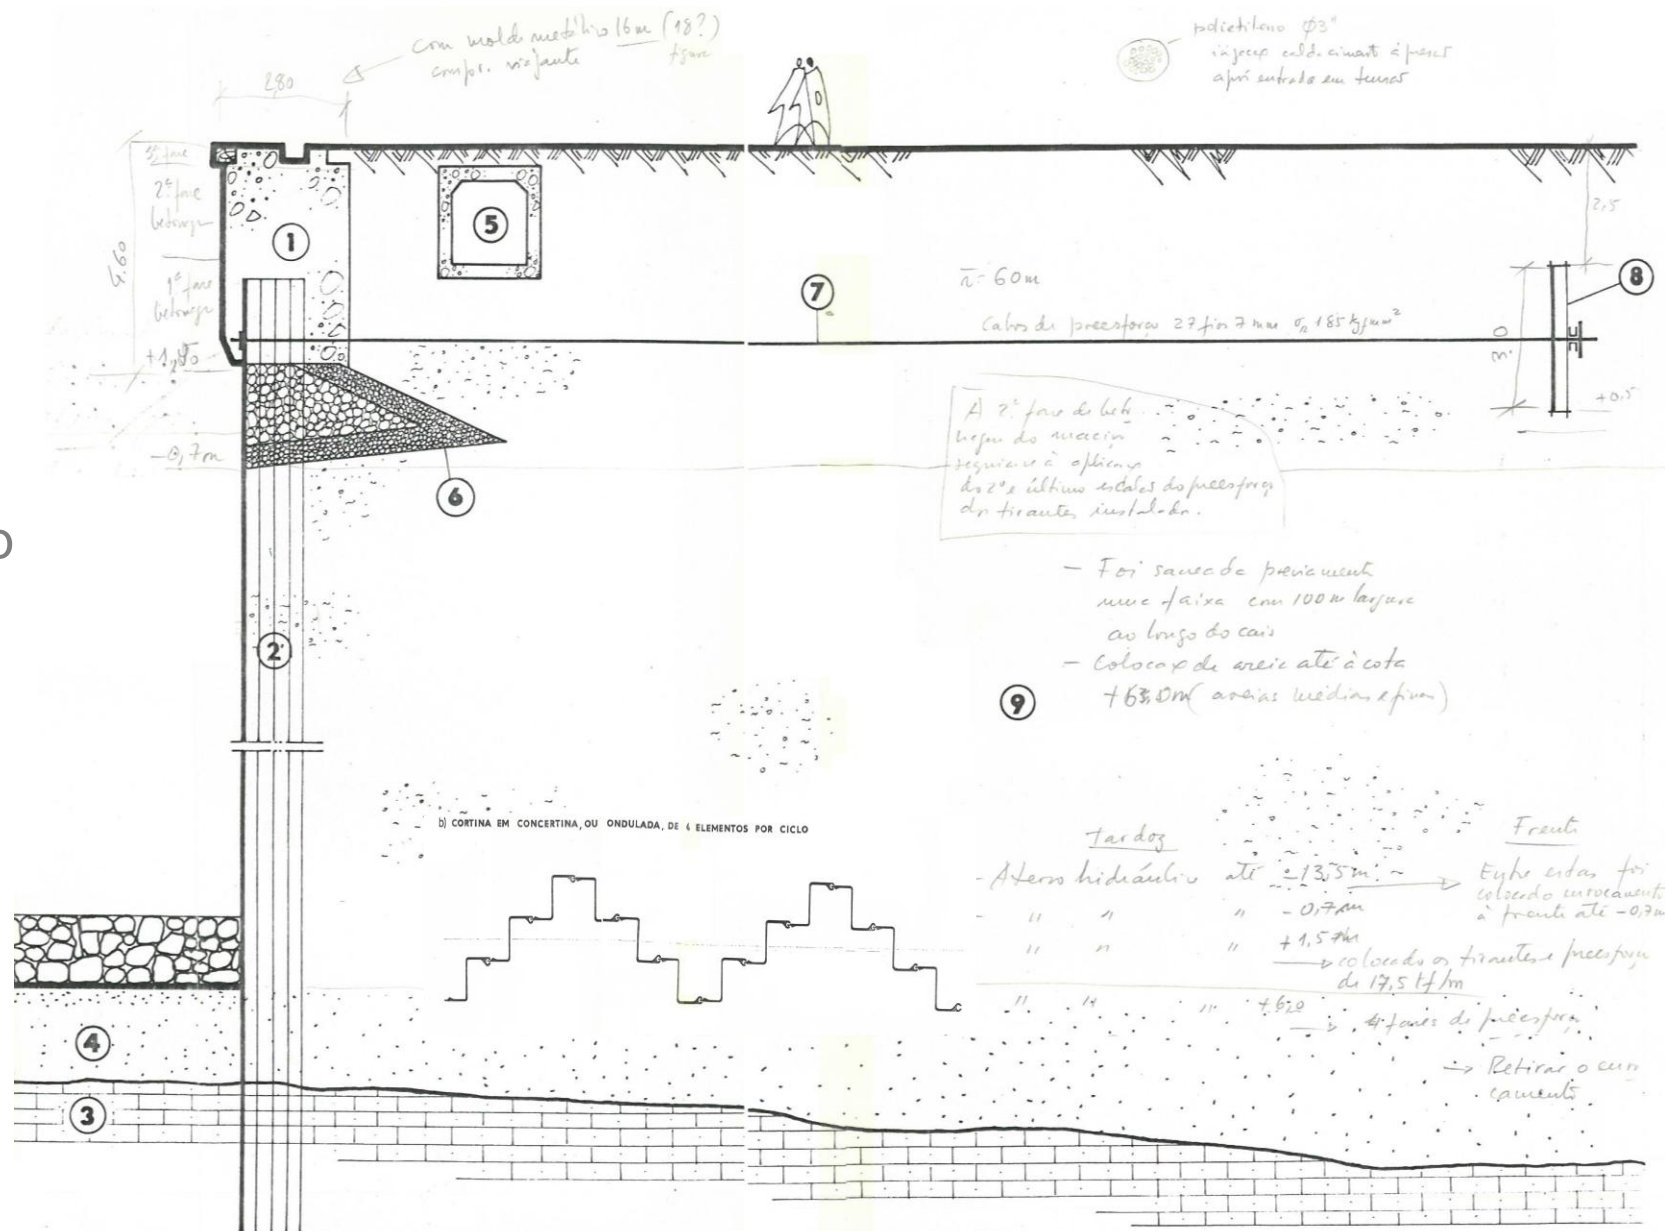 com molde metálico 16m (18?)
compr. viajante
polietileno Ø3"
após entrada em tensão
2,80
3ª fase
2ª fase
betonagem
1ª fase
betonagem
4.60
+1,50
-0,7m
1
5
7
8
6
2
9
4
3
2,5
3.0
+0,5
60m
Cabos de preesforço 27 fios 7 mm 185 kgf/mm²
A 2ª fase de beto
nagem do maciço
do 2º e último escalão do preesforço
dos tirantes instalados.
- Foi saneada previamente
uma faixa com 100m largura
ao longo do cais
- Colocação de areia até à cota
(areias médias e finas)
b) CORTINA EM CONCERTINA, OU ONDULADA, DE 6 ELEMENTOS POR CICLO
tardoz
Frente
- Aterro hidráulico até -13,5m
Entre estas foi
colocado enrocamento
à frente até -0,7m
- " " " -0,7m
" " " +1,5m
colocado os tirantes e preesforço
de 17,5 tf/m
" " "
fases de preesforço
Retirar o enro
camento